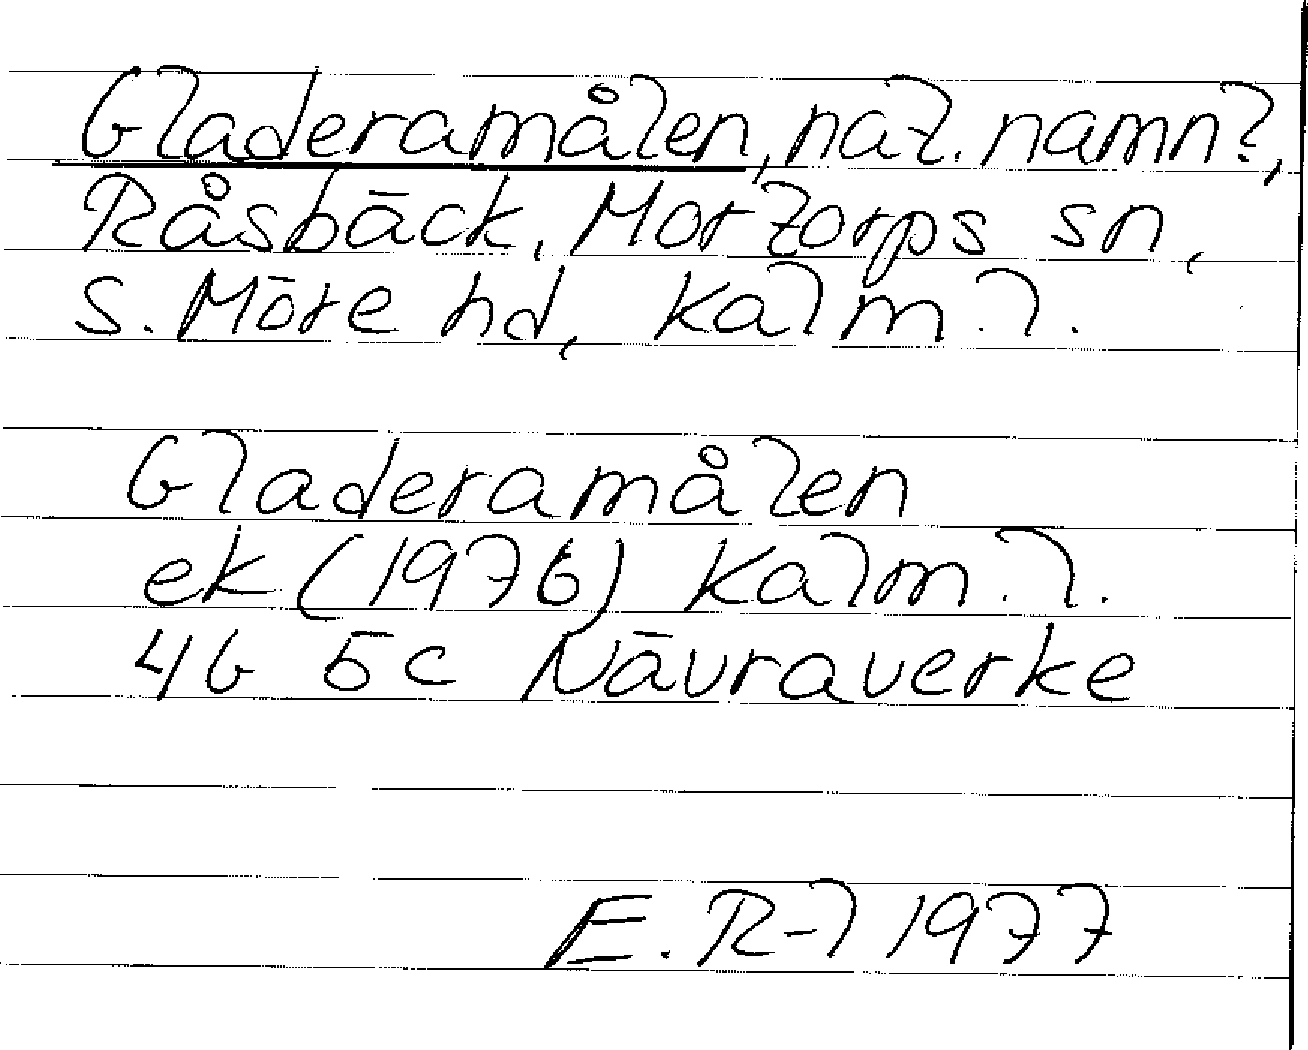 Gladeramålen, nat. namn?,
Råsbäck, Mortorps sn,
S. Möre hd, Kalm. l.
Gladeramålen
ek (1976) Kalm. l.
4G 5c Nävraverke
E. R-l 1977